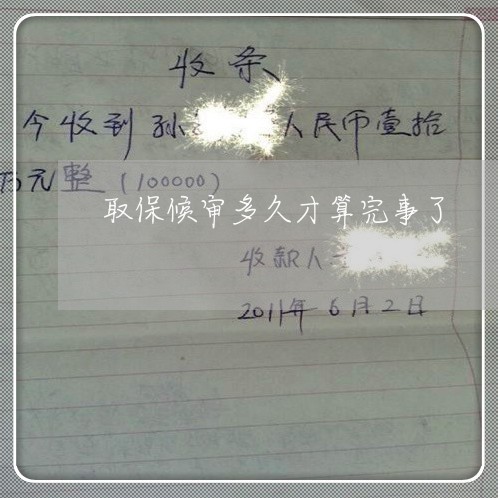 收条
今收到孙 人民币壹拾
万元整（100000）
取保候审多久才算完事了
收款人
2011年6月2日